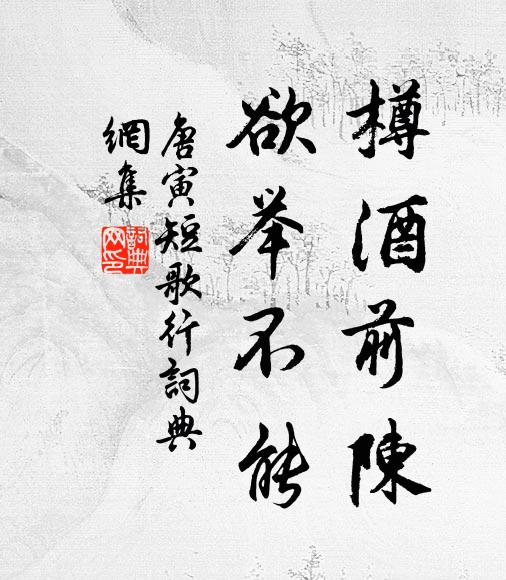 樽酒前陳
欲举不能
唐寅短歌行詞典
網集
詞典网印